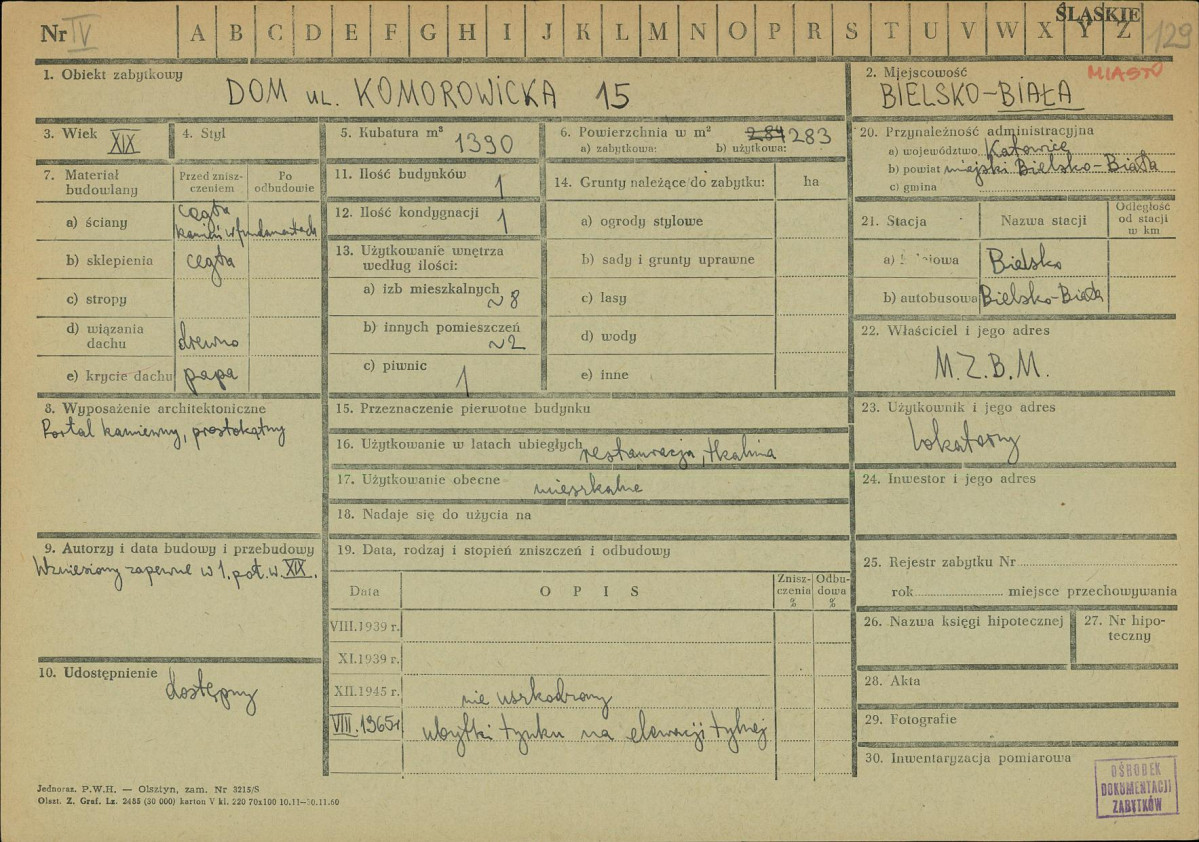 Nr IV A B C D E F G H I J K L M N O P R S T U V W X Y Z ŚLĄSKIE 129
1. Obiekt zabytkowy
DOM ul. KOMOROWICKA 15
2. Miejscowość MIASTO
BIELSKO-BIAŁA
3. Wiek XIX
4. Styl
5. Kubatura m³ 1390
6. Powierzchnia w m² 284 283
a) zabytkowa: b) użytkowa:
7. Materiał budowlany
Przed znisz-
czeniem
Po
odbudowie
a) ściany cegła
kamień w fundamentach
b) sklepienia cegła
c) stropy
d) wiązania
dachu drewno
e) krycie dachu papa
8. Wyposażenie architektoniczne
Portal kamienny, prostokątny
9. Autorzy i data budowy i przebudowy
Wzniesiony zapewne w 1. poł. w. XIX.
10. Udostępnienie
dostępny
11. Ilość budynków 1
12. Ilość kondygnacji 1
13. Użytkowanie wnętrza
według ilości:
a) izb mieszkalnych ~8
b) innych pomieszczeń ~2
c) piwnic 1
14. Grunty należące do zabytku: ha
a) ogrody stylowe
b) sady i grunty uprawne
c) lasy
d) wody
e) inne
15. Przeznaczenie pierwotne budynku
16. Użytkowanie w latach ubiegłych restauracja, tkalnia
17. Użytkowanie obecne mieszkalne
18. Nadaje się do użycia na
19. Data, rodzaj i stopień zniszczeń i odbudowy
Data
O P I S
Znisz-
czenia
%
Odbu-
dowa
%
VIII.1939 r.
XI.1939 r.
XII.1945 r. nie uszkodzony
VIII.1965 r ubytki tynku na elewacji tylnej
20. Przynależność administracyjna
a) województwo Katowice
b) powiat miejski Bielsko-Biała
c) gmina
21. Stacja
Nazwa stacji
Odległość
od stacji
w km
a) Bielsko
b) autobusowa Bielsko-Biała
22. Właściciel i jego adres
M.Z.B.M.
23. Użytkownik i jego adres
lokatorzy
24. Inwestor i jego adres
25. Rejestr zabytku Nr
rok miejsce przechowywania
26. Nazwa księgi hipotecznej
27. Nr hipo-
teczny
28. Akta
29. Fotografie
30. Inwentaryzacja pomiarowa
OŚRODEK
DOKUMENTACJI
ZABYTKÓW
Jednoraz. P.W.H. — Olsztyn, zam. Nr 3215/S
Olszt. Z. Graf. Lz. 2455 (30 000) karton V kl. 220 70x100 10.11—10.11.60